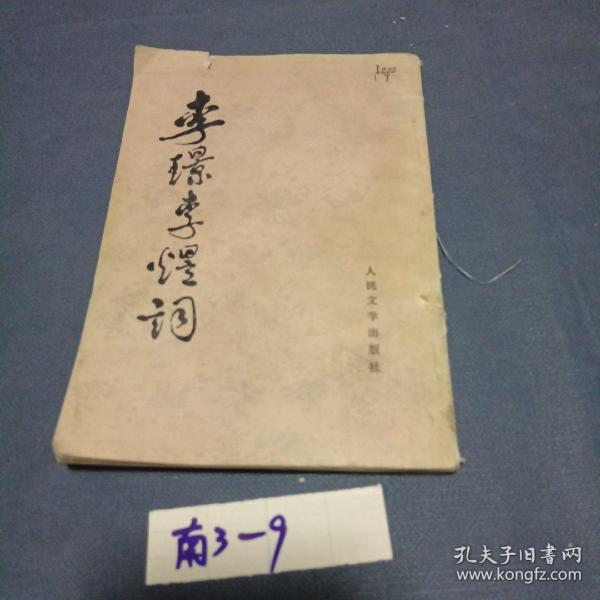 李璟李煜詞
人民文学出版社
南3-9
孔夫子旧书网
www.kongfz.com